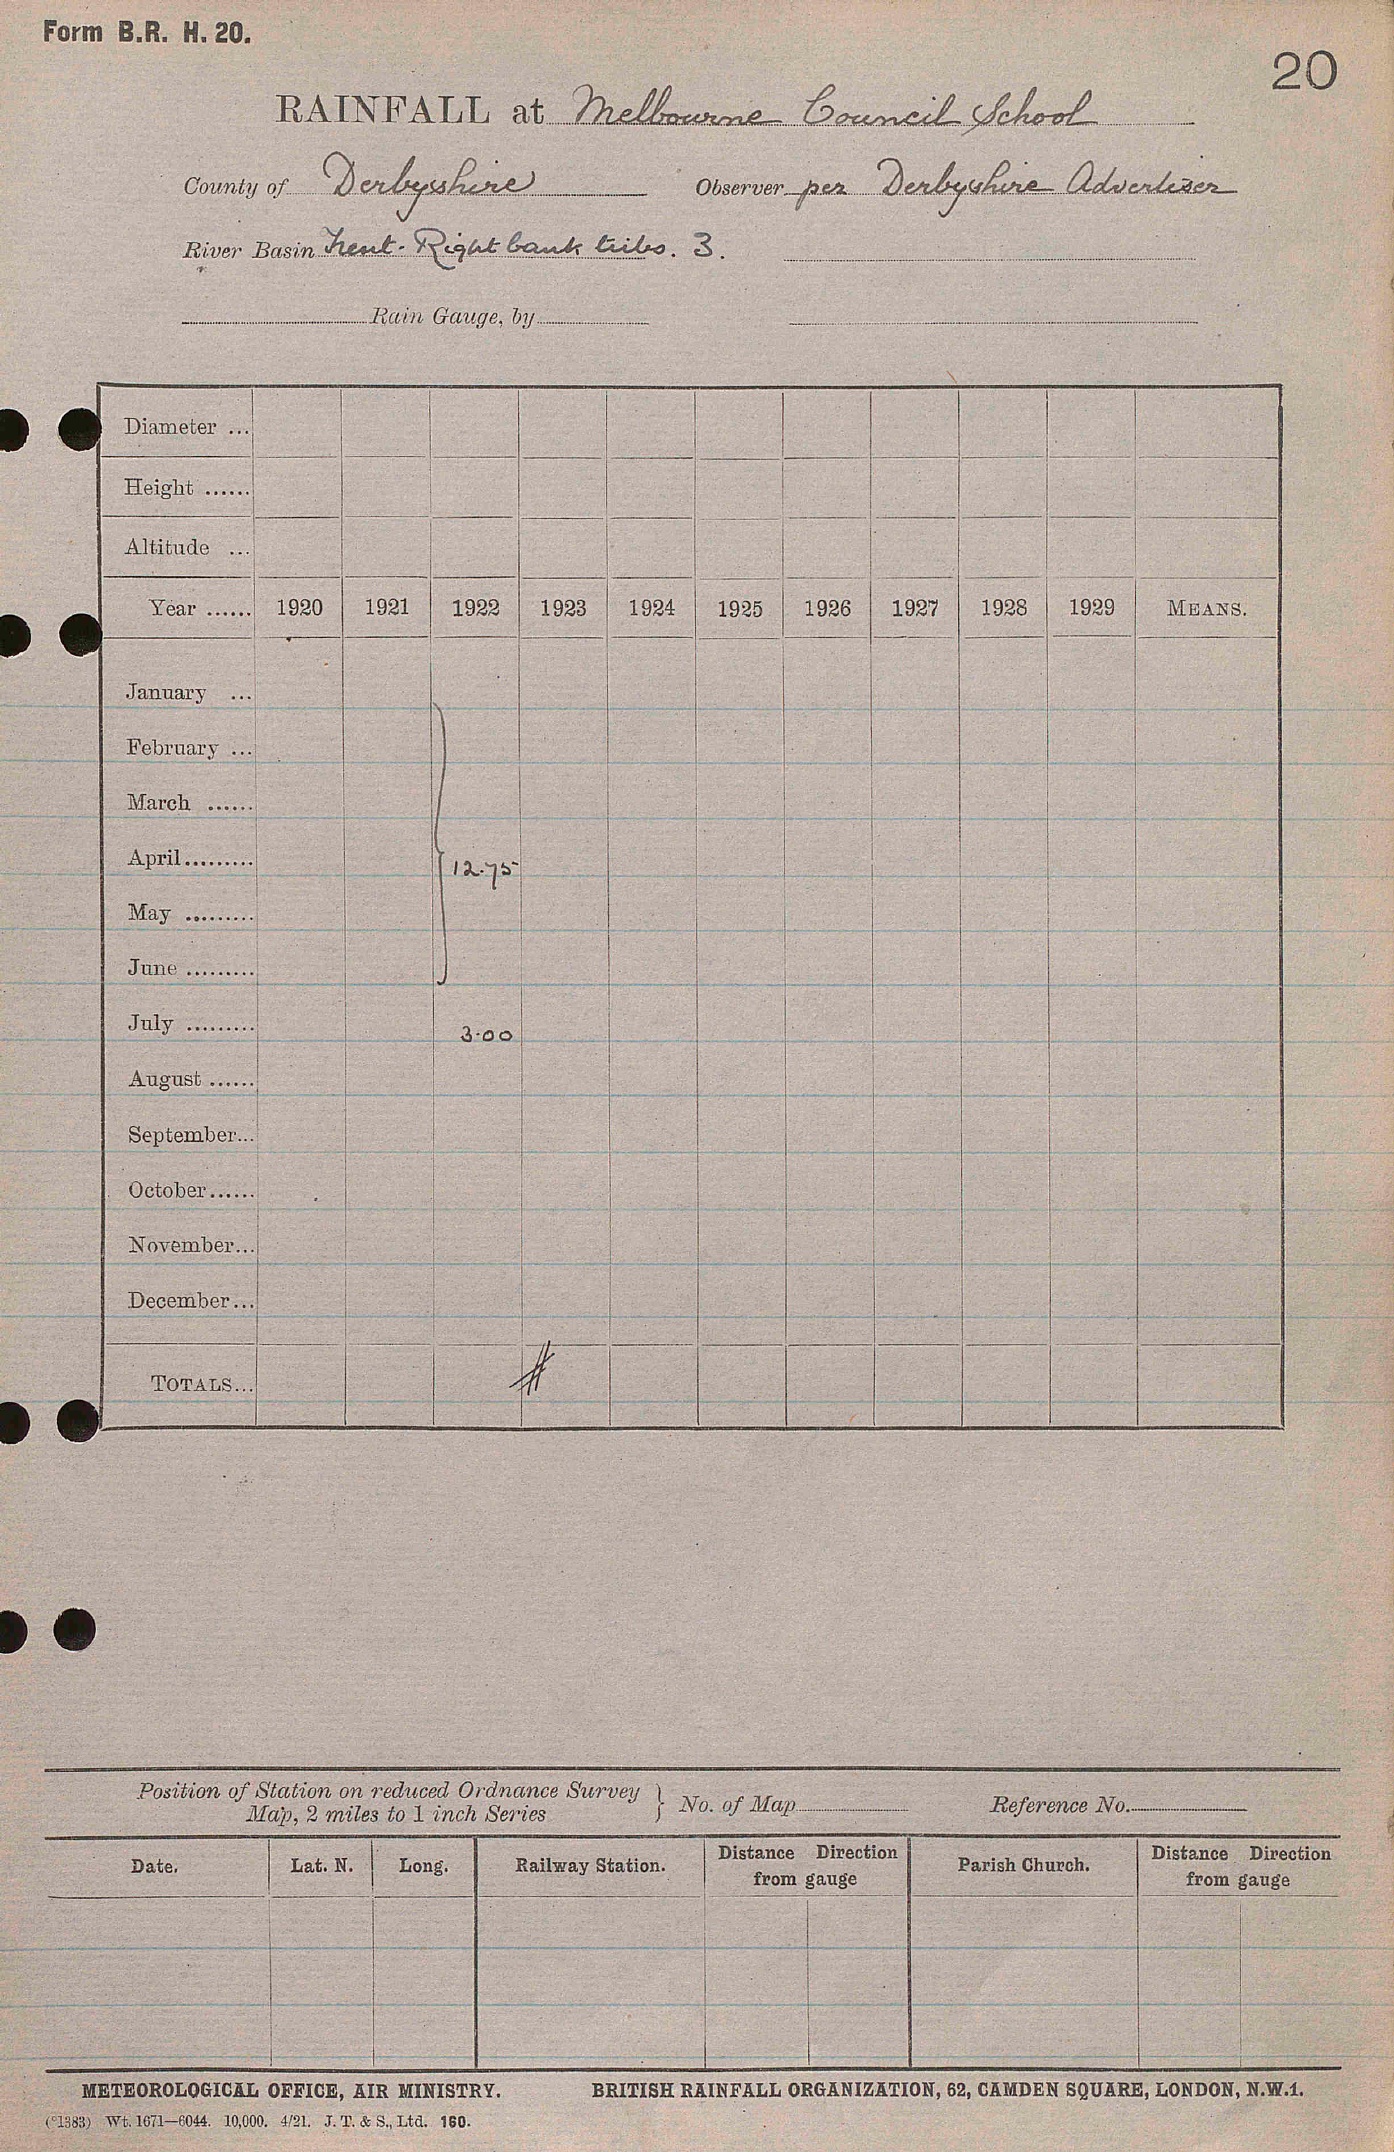 Form B.R. H. 20.
20
RAINFALL at Melbourne Council School
County of Derbyshire Observer per Derbyshire Advertiser
River Basin Trent. Right bank tribs. 3.
Rain Gauge, by
Diameter ...
Height ......
Altitude ...
Year ...... 1920 1921 1922 1923 1924 1925 1926 1927 1928 1929 MEANS.
January ...
February ...
March ......
April ......... 12.75
May .........
June .........
July ......... 3.00
August ......
September...
October......
November...
December...
TOTALS...
Position of Station on reduced Ordnance Survey
Map, 2 miles to 1 inch Series } No. of Map Reference No.
Date. Lat. N. Long. Railway Station. Distance Direction from gauge Parish Church. Distance Direction from gauge
METEOROLOGICAL OFFICE, AIR MINISTRY. BRITISH RAINFALL ORGANIZATION, 62, CAMDEN SQUARE, LONDON, N.W.1.
(*1383) Wt. 1671—6044. 10,000. 4/21. J. T. & S., Ltd. 160.